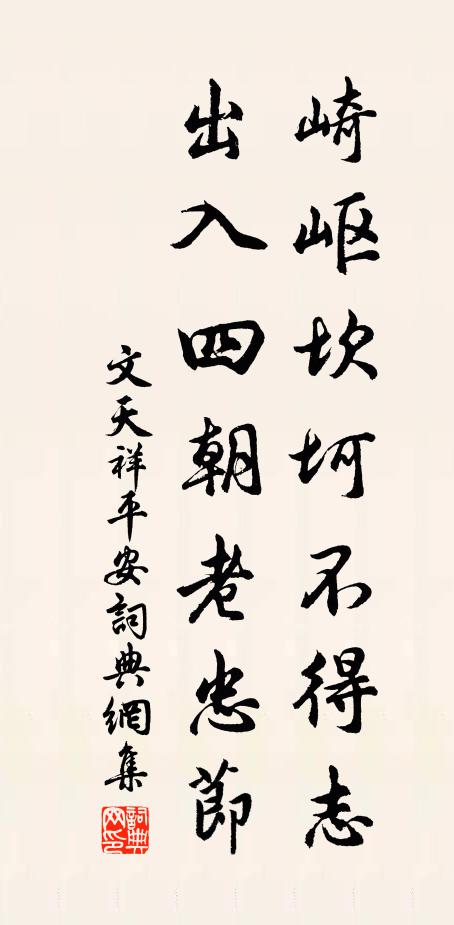 崎岖坎坷不得志
出入四朝老忠節
文天祥平安詞典網集
詞典
网印